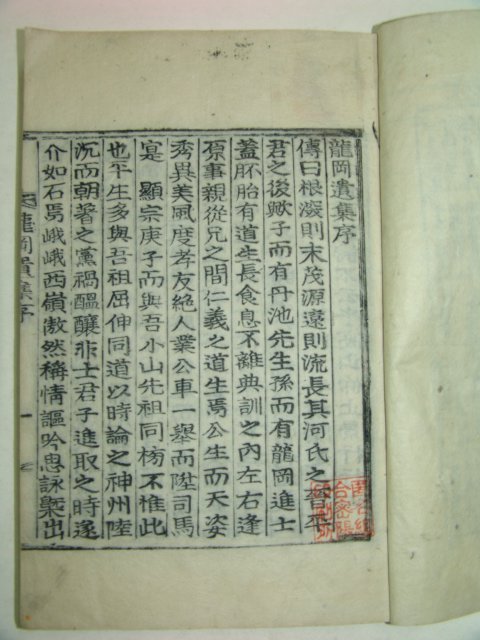 龍岡遺集序
傳曰根深則末茂源遠則流長其河氏之晉平
君之後歟子而有丹池先生孫而有龍岡進士
蓋胚胎有道生長食息不離典訓之內左右逢
原事親從兄之間仁義之道生焉公生而天姿
秀異美風度孝友絶人業公車一舉而陞司馬
寔 顯宗庚子而與吾小山先祖同榜不惟此
也平生多與吾祖屈伸同道以時論之神州陸
沉而朝著之黨禍醞釀非士君子進取之時遂
介如石焉峨峨西嶺傲然稱情謳吟思詠槩出
龍岡遺集序
一